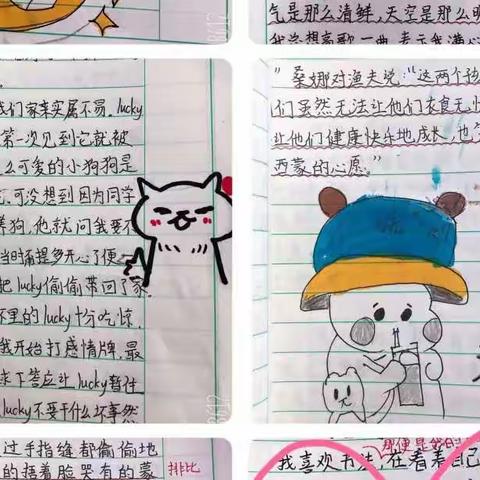 气是那么清鲜,天空是那么明
我总想高歌一曲,表示我满心
我们家幸实属不易。lucky
第一次见到它就被
么可爱的小狗狗是
可没想到因为同学
养狗,他就问我要不
当时甭提多开心了便一
把lucky偷偷带回了家。
家里的lucky十分吃惊,
我开始打感情牌,最
求下答应让lucky暂住
lucky不要干什么坏事然
”桑娜对渔夫说:“这两个孩
们虽然无法让他们衣食无忧
让他们健康快乐地成长,也
西蒙的心愿。”
过手指缝都偷偷地
的捂着脸哭有的蒙
排比
那便是
我喜欢书法,在看着自己